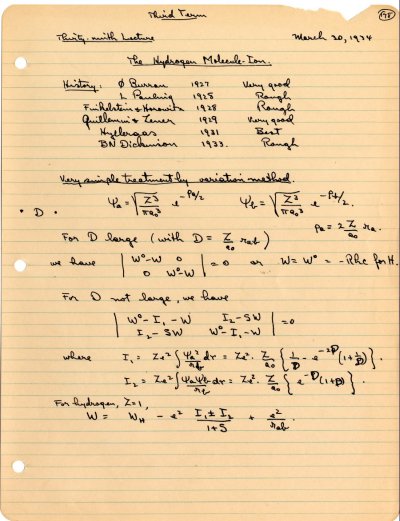 Third Term
178
Thirty-ninth Lecture March 20, 1934
The Hydrogen Molecule-Ion.
History: Ø Burrau 1927 Very good
L Pauling 1928 Rough
Finkelstein & Horowitz 1928 Rough
Guillemin & Zener 1929 Very good
Hylleraas 1931 Best
BN Dickinson 1933. Rough
Very simple treatment by variation method.
• D • ψa = √(Z³/πa₀³) e^(-ρa/2) ψb = √(Z³/πa₀³) e^(-ρb/2).
ρa = 2 Z/a₀ ra.
For D large (with D = Z/a₀ rab)
we have | W⁰-W 0 | = 0 or W = W⁰ = -Rhc for H.
| 0 W⁰-W |
For D not large, we have
| W⁰-I₁-W I₂-SW | = 0
| I₂-SW W⁰-I₁-W |
where I₁ = Ze² ∫ ψa²/rb dτ = Ze². Z/a₀ { 1/D - e^(-2D) (1+1/D) }.
I₂ = Ze² ∫ ψaψb/rb dτ = Ze². Z/a₀ { e^(-D) (1+D) }.
For hydrogen, Z=1,
W = W_H - e² (I₁ ± I₂)/(1±S) + e²/rab.